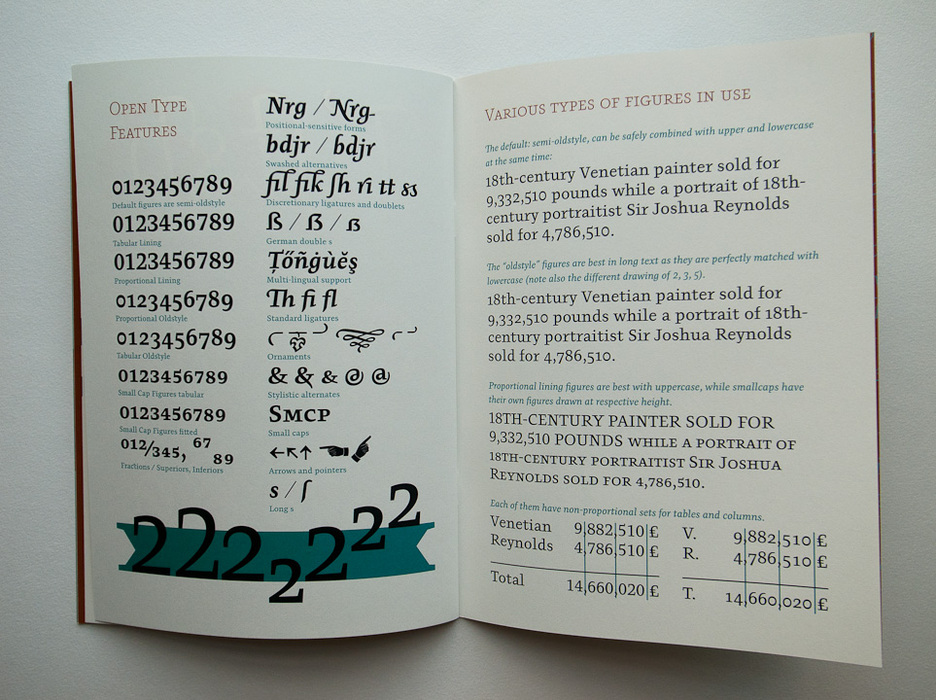 OPEN TYPE
FEATURES
0123456789
Default figures are semi-oldstyle
0123456789
Tabular Lining
0123456789
Proportional Lining
0123456789
Proportional Oldstyle
0123456789
Tabular Oldstyle
0123456789
Small Cap Figures tabular
0123456789
Small Cap Figures fitted
012/345, 67 89
Fractions / Superiors, Inferiors
Nrg / Nrg
Positional-sensitive forms
bdjr / bdjr
Swashed alternatives
fil fik ſh ri tt ss
Discretionary ligatures and doublets
ß / ẞ / ß
German double s
Ţőñġùěş
Multi-lingual support
Th fi fl
Standard ligatures
Ornaments
& & & @ @
Stylistic alternates
SMCP
Small caps
←↖↑
Arrows and pointers
s / ſ
Long s
2222222
VARIOUS TYPES OF FIGURES IN USE
The default: semi-oldstyle, can be safely combined with upper and lowercase
at the same time:
18th-century Venetian painter sold for
9,332,510 pounds while a portrait of 18th-
century portraitist Sir Joshua Reynolds
sold for 4,786,510.
The "oldstyle" figures are best in long text as they are perfectly matched with
lowercase (note also the different drawing of 2, 3, 5).
18th-century Venetian painter sold for
9,332,510 pounds while a portrait of 18th-
century portraitist Sir Joshua Reynolds
sold for 4,786,510.
Proportional lining figures are best with uppercase, while smallcaps have
their own figures drawn at respective height.
18TH-CENTURY PAINTER SOLD FOR
9,332,510 POUNDS WHILE A PORTRAIT OF
18TH-CENTURY PORTRAITIST SIR JOSHUA
REYNOLDS SOLD FOR 4,786,510.
Each of them have non-proportional sets for tables and columns.
Venetian 9,882,510 £ V. 9,882,510 £
Reynolds 4,786,510 £ R. 4,786,510 £
Total 14,660,020 £ T. 14,660,020 £